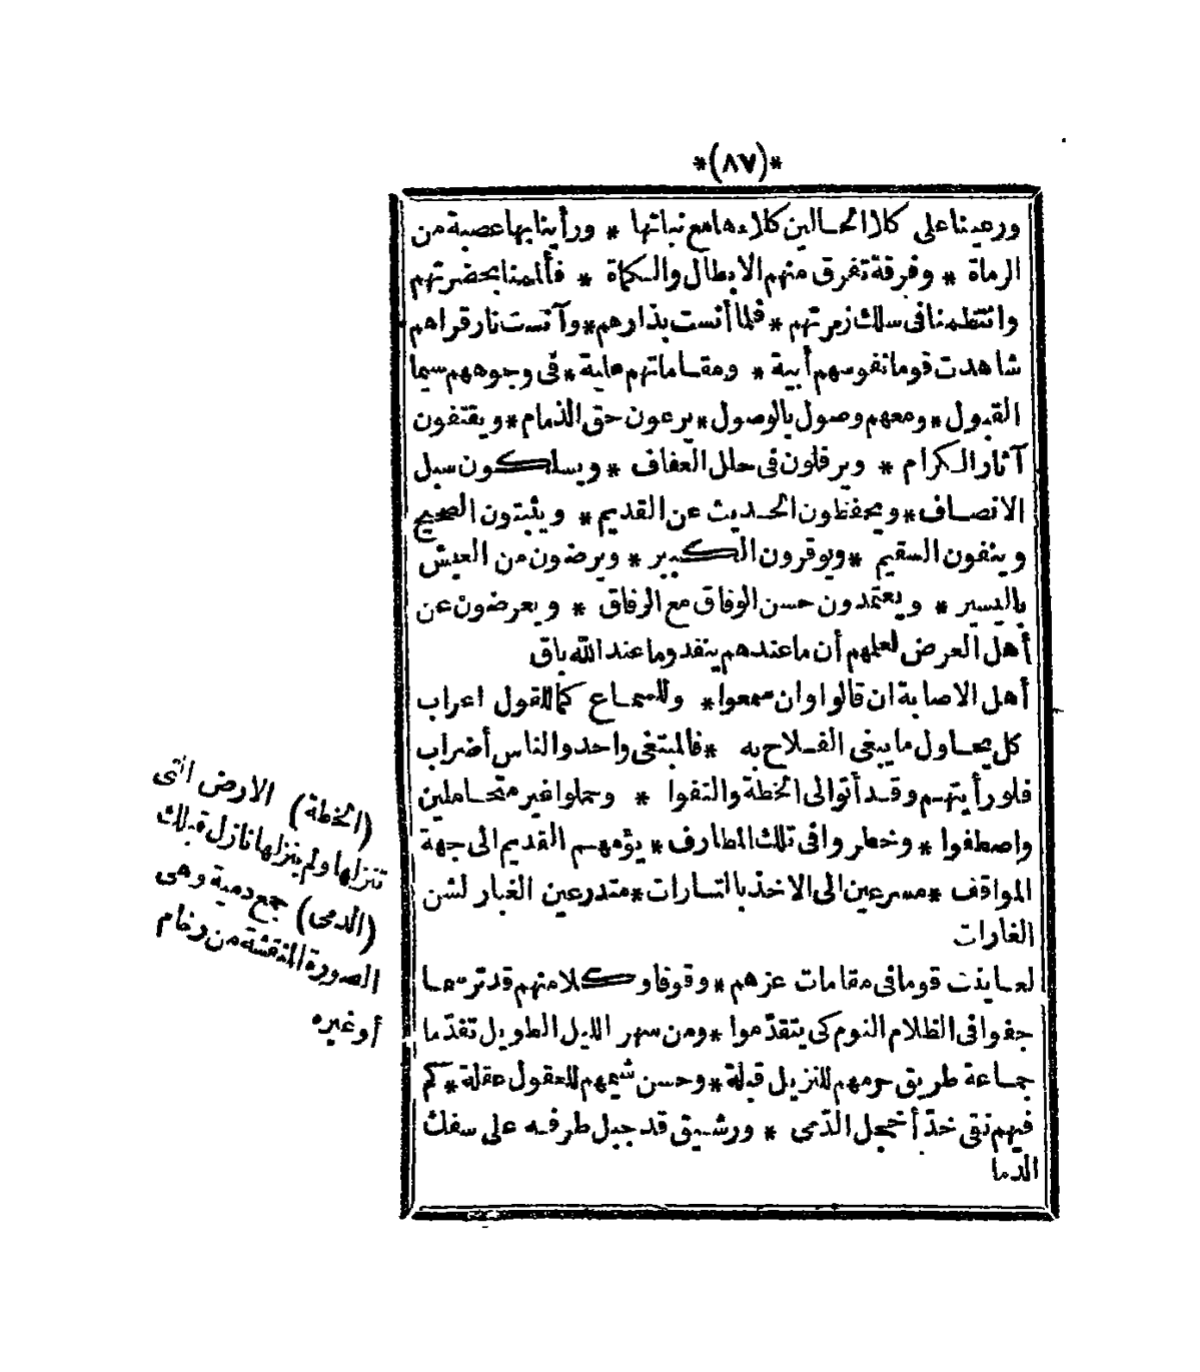 *(٨٧)*
ورعينا على كلا الحالين كلاءها مع نباتها * ورأينا بها عصبة من
الرماة * وفرقة تفرق منهم الابطال والكماة * فألممنا بحضرتهم
وانتظمنا فى سلك زمرتهم * فلما أنست بذارهم * وآنست نار قراهم
شاهدت قوما نفوسهم أبية * ومقاماتهم علية * فى وجوههم سيما
القبول * ومعهم وصول بالوصول * يرعون حق الذمام * ويقتفون
آثار الكرام * ويرفلون فى حلل العفاف * ويسلكون سبل
الانصاف * ويحفظون الحديث عن القديم * ويثبتون الصحيح
وينفون السقيم * ويوقرون الكبير * ويرضون من العيش
باليسير * ويعتمدون حسن الوفاق مع الرفاق * ويعرضون عن
أهل العرض لعلمهم أن ما عندهم ينفد وما عند الله باق
أهل الاصابة ان قالوا وان سمعوا * وللسماع كما للقول اعراب
كل يحاول ما يبغى الفلاح به * فالمبتغى واحد والناس أضراب
فلو رأيتهم وقد أتوا الى الخطة والتفوا * وحملوا غير متحاملين
واصطفوا * وخطروا فى تلك المطارف * يؤمهم القديم الى جهة
المواقف * مسرعين الى الاخذ بالتارات * متدرعين الغبار لشن
الغارات
لعاينت قوما فى مقامات عزهم * وقوفا وكلا منهم قد ترسما
جفوا فى الظلام النوم كى يتقدّموا * ومن سهر الليل الطويل تقدّما
جماعة طريق حرمهم للنزيل قبلة * وحسن شيمهم للعقول عقلة * كم
فيهم نقى خدّ أخجل الدّمى * ورشيق قد جبل طرفه على سفك
الدّما
(الخطة) الارض التى
تنزلها ولم ينزلها نازل قبلك
(الدمى) جمع دمية وهى
الصورة المنقشة من رخام
أو غيره